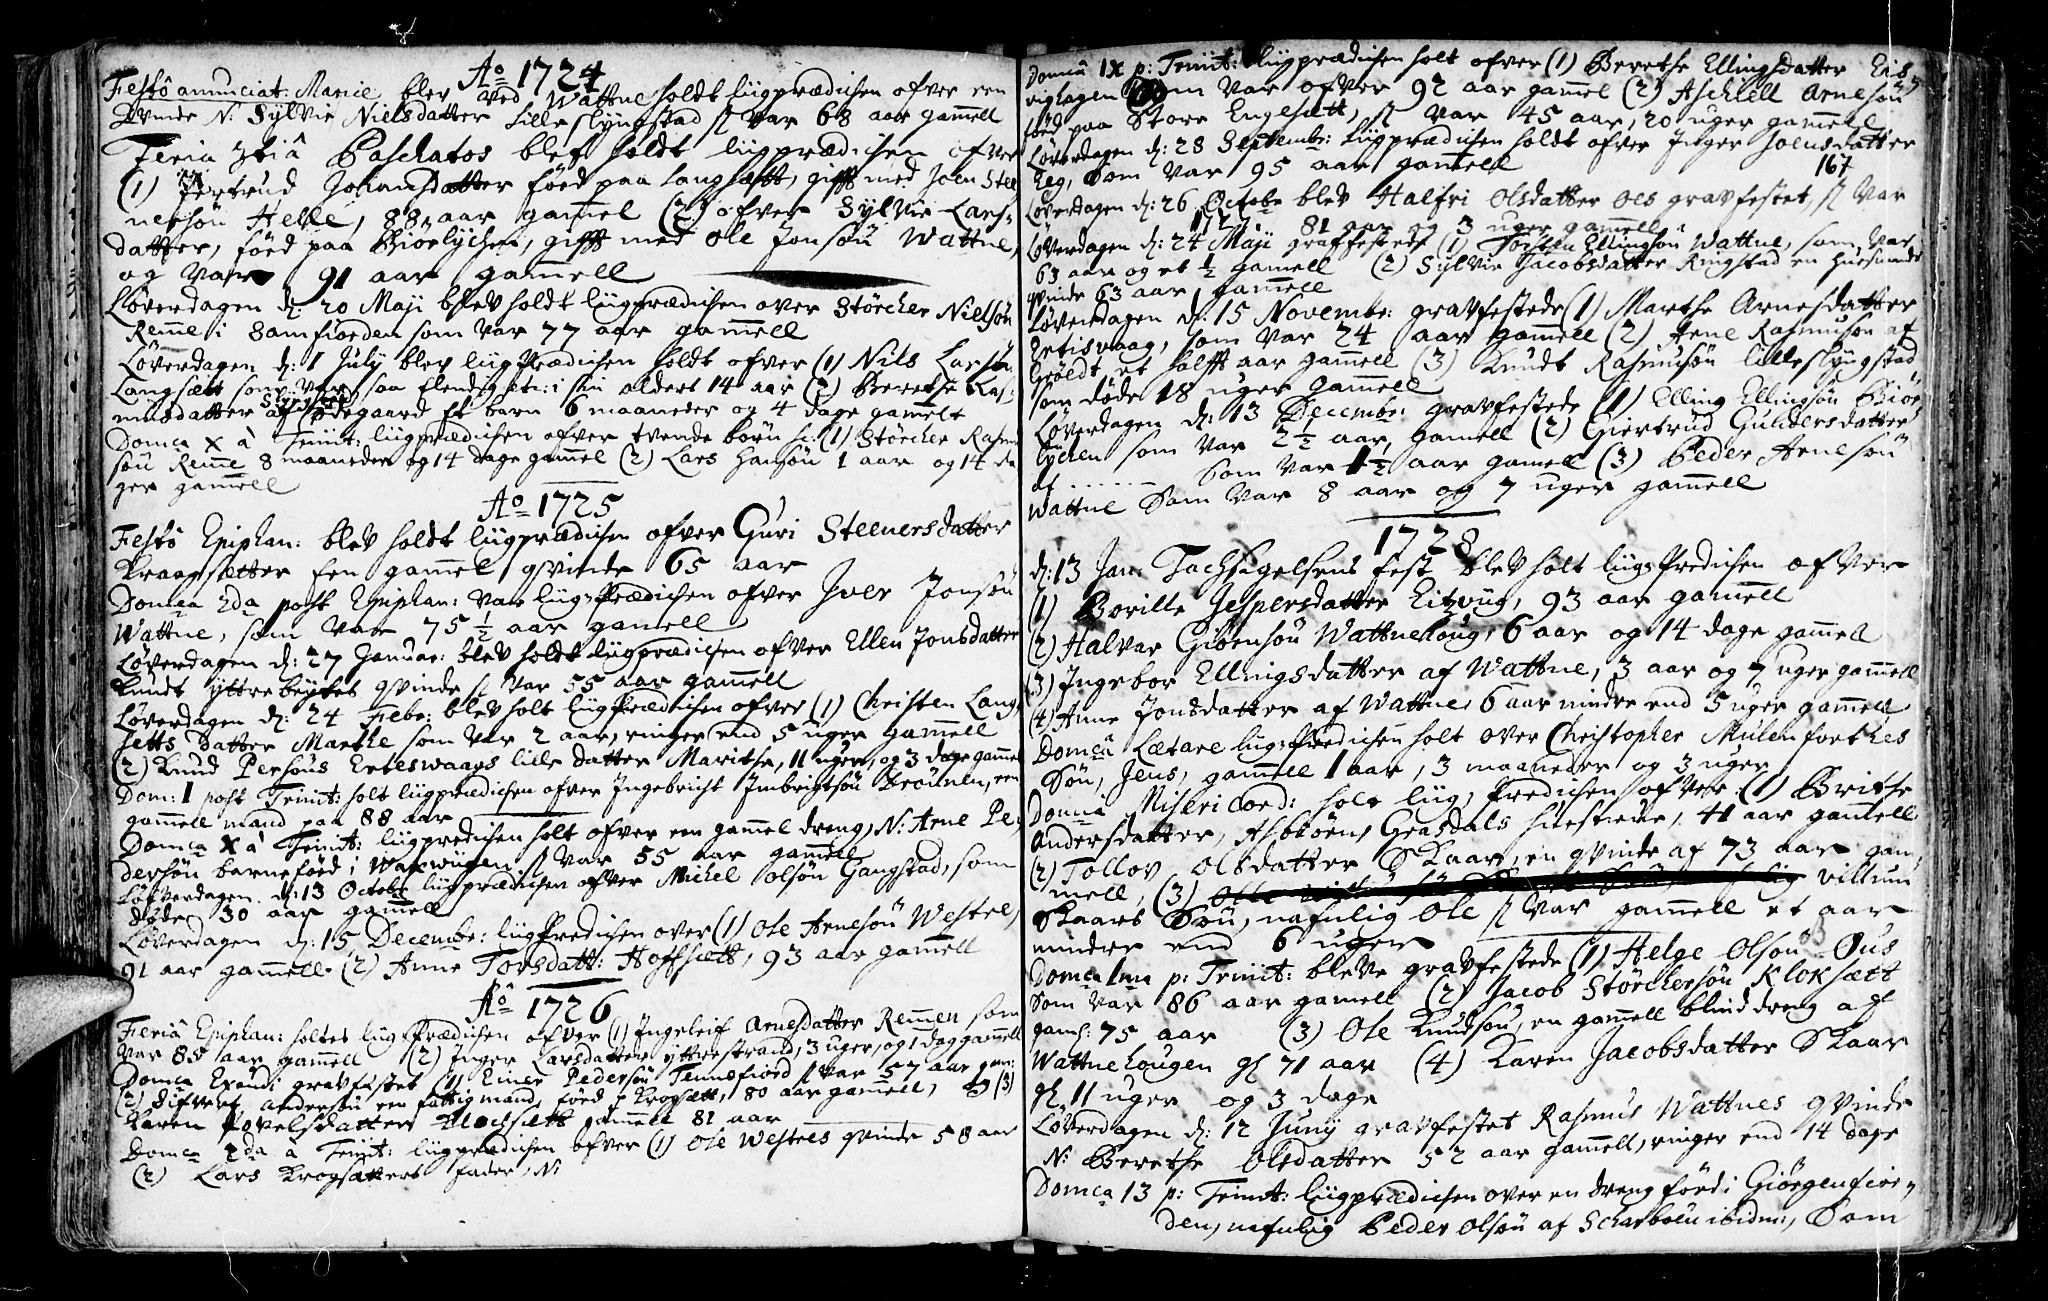 Ao 1724
Festô anunciat: Mariæ blev ved Wattne holdt liigprædichen ofver een
Qvinde N: Sylvie Nielsdatter Lilleslyngstad var 68 aar gam̄ell
Feria 3tiâ Paschatos blef holdt liigprædichen ofver
(1) Johansdatter föed paa Langsætt, gifft med Joen Stee
nersön Helle, 88 aar gam̄el (2) ofver Sylvie Lars-
datter, föed paa Biörlychen, gifft med Ole Jonsön Wattne,
og var 91 aar gam̄ell
Löverdagen d: 20 Maji blev holdt liigprædichen over Störcher Nielsön
Rem̄e i Samfiorden som var 77 aar gam̄ell
Löverdagen d: 1 July blev liigprædichen holdt ofver (1) Nils Larsön
Langsætt som var saa Elendig i sin alders 14 aar (2) Berethe Ras-
musdatter af Ödegaard Et barn 6 maaneder og 4 dage gamelt
Domca X à Trinit: liigprædichen ofver tvende börn (1) Störcher Rasmu
sön Rem̄e 8 maaneder og 14 dage gam̄el (2) Lars Hansön 1 aar og 14 da
ger gam̄ell
Ao 1725
Festô Epiphan: blev holdt liigprædichen ofver Guri Steenersdatter
Kraagsætter Een gam̄el qvinde 65 aar
Domca 2da post Epiphan: var liigprædichen ofver Iver Jonsön
Wattne, som var 75 1/2 aar gam̄ell
Löverdagen d: 27 Januar: blev holdt liigprædichen ofver Ellen Jonsdatter
Knudt yttre qvinde var 55 aar gam̄ell
Löverdagen d: 24 Febr: blev holt liigprædichen ofver (1) Christen Lang
setts datter Marthe som var 2 aar, ringer end 5 uger gam̄ell
(2) Knud Persöns Erteswaags lille datter Marithe, 11 uger, og 3 dage gam̄el
Dom: 1 post Trinit: holt liigprædichen ofver Ingebricht Imbrigtsön een
gam̄ell mand paa 88 aar
Domca X à Trinit: liigprædichen holt ofver een gam̄el dreng, N: Arne Pe-
dersön barneföed i var 55 aar gam̄el
Löfverdagen d: 13 Octobr liigprædichen ofver Michel Olsön Gangstad, som
döde 30 aar gam̄ell
Löverdagen d: 15 Decembr: liigprædichen over (1) Ole Arnesön Westre,
91 aar gam̄ell. (2) Anne Torsdatt: Hoffsætt, 93 aar gam̄ell
Aô 1726
Feriâ Epiphan: holtes liigprædichen ofver (1) Ingeleif Arnesdatter Rem̄en som
var 85 aar gam̄ell (2) Inger Larsdatter yttrestrand, 3 uger, og 1 dag gam̄ell
Domca Exaudi gravfestet (1) Einer Pedersön Tennefiord var 57 aar gam:
(2) Sifvert Andersön een fattig mand, föed i Krogsætt, 80 aar gam̄ell, og (3)
Karen Povelsdatter Klochsætt gam̄ell 81 aar
Domca 2da à Trinit: liigprædichen ofver (1) Ole Westres qvinde 58 aar
(2) Lars Krogsætters fader, N:
Domca IX p: Trinit: liigprædichen holt ofver (1) Berethe Ellingsdatter Eis
vighagen som var ofver 92 aar gam̄el (2) Aschell Arnesön
föed paa Store Engesætt, var 45 aar, 20 uger gam̄ell
Löverdagen d: 28 Septembr: liigprædichen holdt ofver Inger Joensdatter
Eeg, som var 95 aar gam̄ell
167
Löverdagen d: 26 Octobr blev Halfri Olsdatter Oes gravfestet, var
81 aar og 3 uger gam̄ell
1727
Löverdagen d: 24 Maji graffestede (1) Torsten Ellingsön Wattne, som var
63 aar og et 1/2 gam̄ell (2) Sylvie Jacobsdatter Ringstad en huusmands
qvinde 63 aar gam̄ell
Löverdagen d: 15 Novembr: gravfestede (1) Marthe Arnesdatter
Ertisvaag, som var 24 aar gam̄ell (2) Arne Rasmusön af
Gröldt et halfft aar gam̄ell (3) Knudt Rasmusön lille slyngstad
som döde 18 uger gam̄ell
Löverdagen d: 13 Decembr: gravfestede (1) Elling Ellingsön Biör
lychen som var 2 1/2 aar, gam̄ell (2) Giertrud Guldersdatter
af ...... Som var 1 1/2 aar gamell (3) Peder Arnesön
Wattne Som var 8 aar og 7 uger gam̄ell
1728
d: 13 Jan: Tachsigelsens fest blev holt liigprædichen ofver
(1) Borille Jespersdatter Eitzviig, 93 aar gam̄ell
(2) Halvar Giörnsön Wattnehoug, 6 aar og 14 dage gam̄ell
(3) Ingebor Ellingsdatter af Wattne, 3 aar og 7 uger gam̄ell
(4) Anne Jonsdatter af Wattne, 6 aar mindre end 5 uger gam̄ell
Domca Lætare liigprædichen holt over Christopher Mülenforthes
Sön, Jens, gam̄ell 1 aar, 3 maaneder og 3 uger
Domca Misericord: holt liigprædichen ofver (1) Brithe
Andersdatter, Asbiörn Grasdals huestrue, 41 aar gam̄ell
(2) Tollov Olsdatter Skaar, en qvinde af 73 aar gam-
mell, (3) villum
Skaars Sön, nafnlig Ole var gam̄ell et aar
mindre end 6 uger
Domca 1ma p: Trinit: bleve gravfestede (1) Helge Olsön Ous
Som var 86 aar gam̄ell (2) Jacob Störchersön Kloksætt
gaml: 75 aar (3) Ole Knudsön, en gam̄ell blind dreng af
Wattnehougen gl 71 aar (4) Karen Jacobsdatter Skaar
gl. 11 uger og 3 dage
Löverdagen d: 12 Junij gravfestet Rasmus Wattnes qvinde
N: Berethe Olsdatter 52 aar gam̄ell, ringer end 14 dage
Domca 13 p: Trinit: liigprædichen over en dreng föed i Giörgenfior-
den, nafnlig Peder Olsön af ibidm:, Som